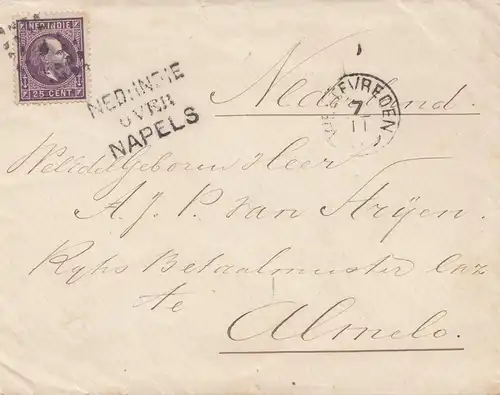 NED. INDIE
25 CENT.
NED. INDIE
OVER
NAPELS
Nederland.
7
11
WelEdelgeboren Heer
A. J. P. van
Ryks Betaalmeester Enz
te
Almelo.